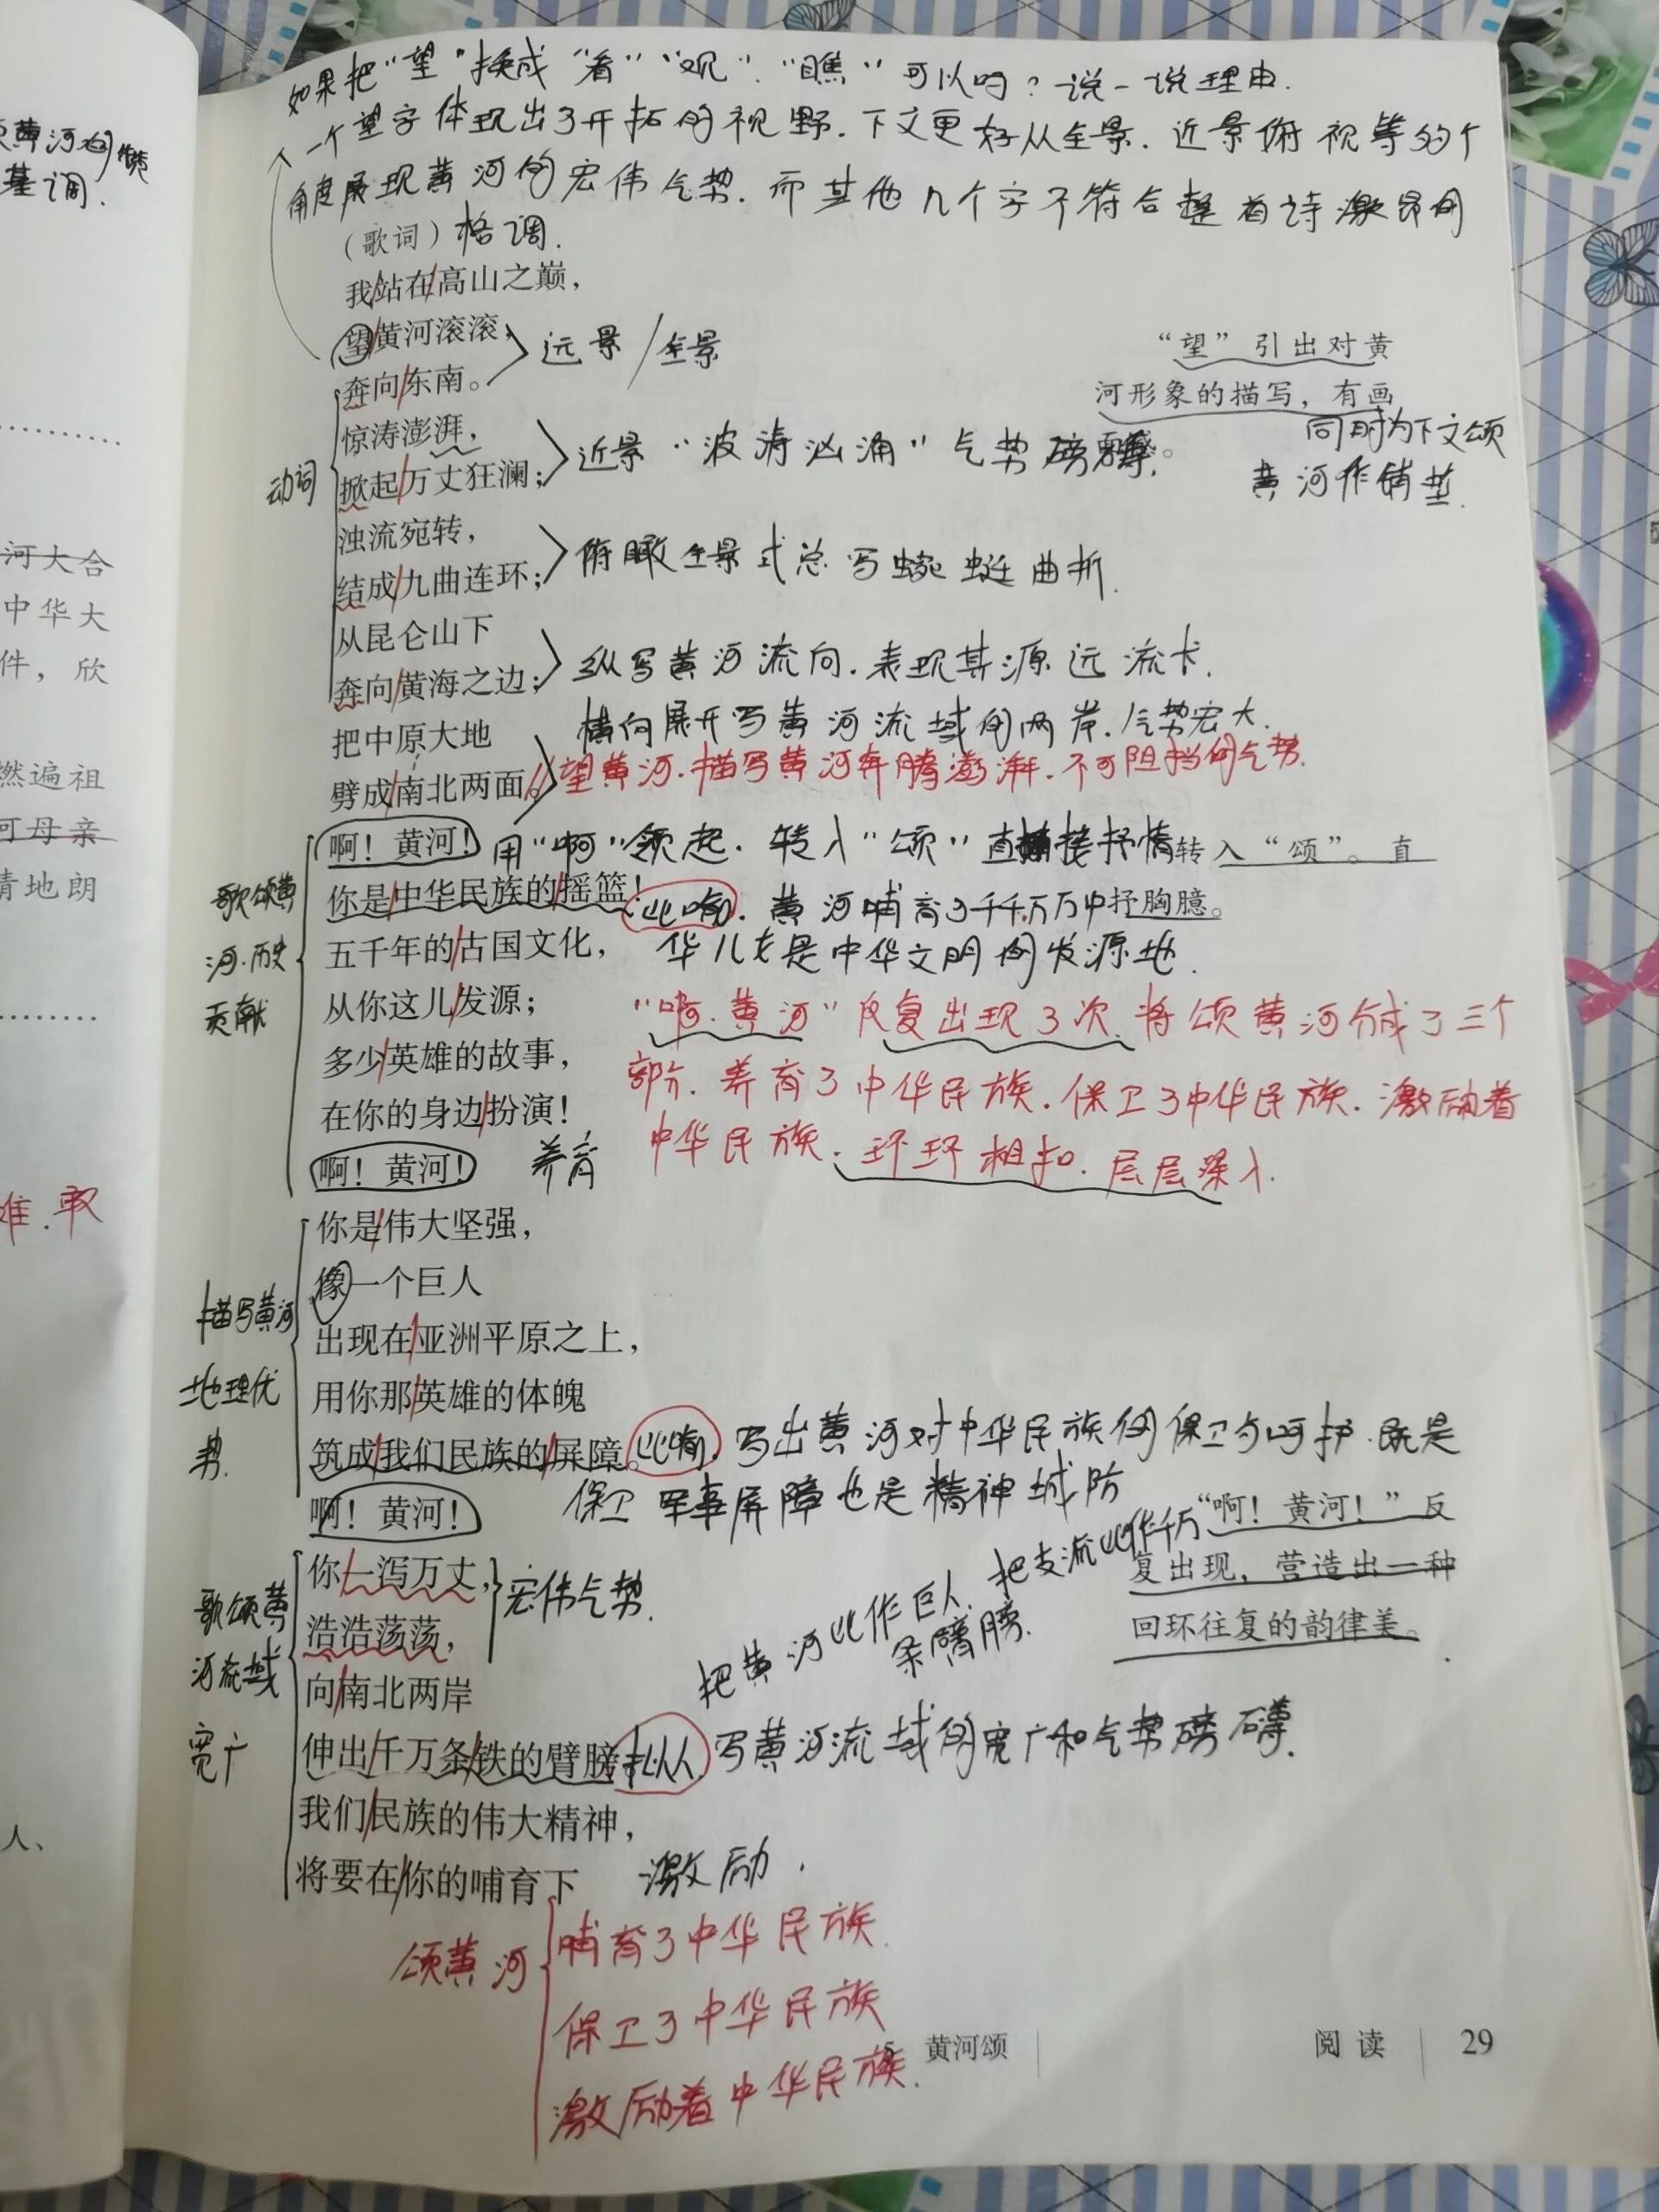 黄河的
基调.
河大合
中华大
件，欣
燃遍祖
河母亲
情地朗
难.取
人、
如果把“望”换成“看”“观”.“瞧”可以吗?说一说理由.
一个望字体现出了开拓的视野.下文更好从全景.近景俯视等多个
角度展现黄河的宏伟气势.而其他几个字不符合整首诗激昂的
（歌词）格调.
我站在高山之巅，
望黄河滚滚，
远景/全景
奔向东南。
“望”引出对黄
河形象的描写，有画
同时为下文颂
黄河作铺垫.
动词
惊涛澎湃，
掀起万丈狂澜；
近景“波涛汹涌”气势磅礴.
浊流宛转，
结成九曲连环；
俯瞰全景式总写蜿蜒曲折.
从昆仑山下
奔向黄海之边；
纵写黄河流向.表现其源远流长.
把中原大地
横向展开写黄河流域的两岸.气势宏大.
劈成南北两面。
望黄河.描写黄河奔腾澎湃.不可阻挡的气势.
啊！黄河！
用“啊”领起.转入“颂”直接抒情
转入“颂”。直
抒胸臆。
歌颂黄
河.历史
贡献
你是中华民族的摇篮！
比喻.黄河哺育了千千万万中
华儿女是中华文明的发源地.
五千年的古国文化，
从你这儿发源；
“啊.黄河”反复出现3次.将颂黄河分成了三个
部分.养育了中华民族.保卫了中华民族.激励着
中华民族.环环相扣.层层深入.
多少英雄的故事，
在你的身边扮演！
啊！黄河！
养育
描写黄河
地理优
势.
你是伟大坚强，
像一个巨人
出现在亚洲平原之上，
用你那英雄的体魄
筑成我们民族的屏障。
比喻.写出黄河对中华民族的保卫与呵护.既是
军事屏障也是精神城防
啊！黄河！
保卫
“啊！黄河！”反
复出现，营造出一种
回环往复的韵律美。
歌颂黄
河流域
宽广
你一泻万丈，
浩浩荡荡，
宏伟气势.
把黄河比作巨人.把支流比作千万
条臂膀.
向南北两岸
伸出千万条铁的臂膀
拟人.写黄河流域的宽广和气势磅礴.
我们民族的伟大精神，
将要在你的哺育下
激励.
颂黄河
哺育了中华民族.
保卫了中华民族
激励着中华民族.
5 黄河颂
阅读
29